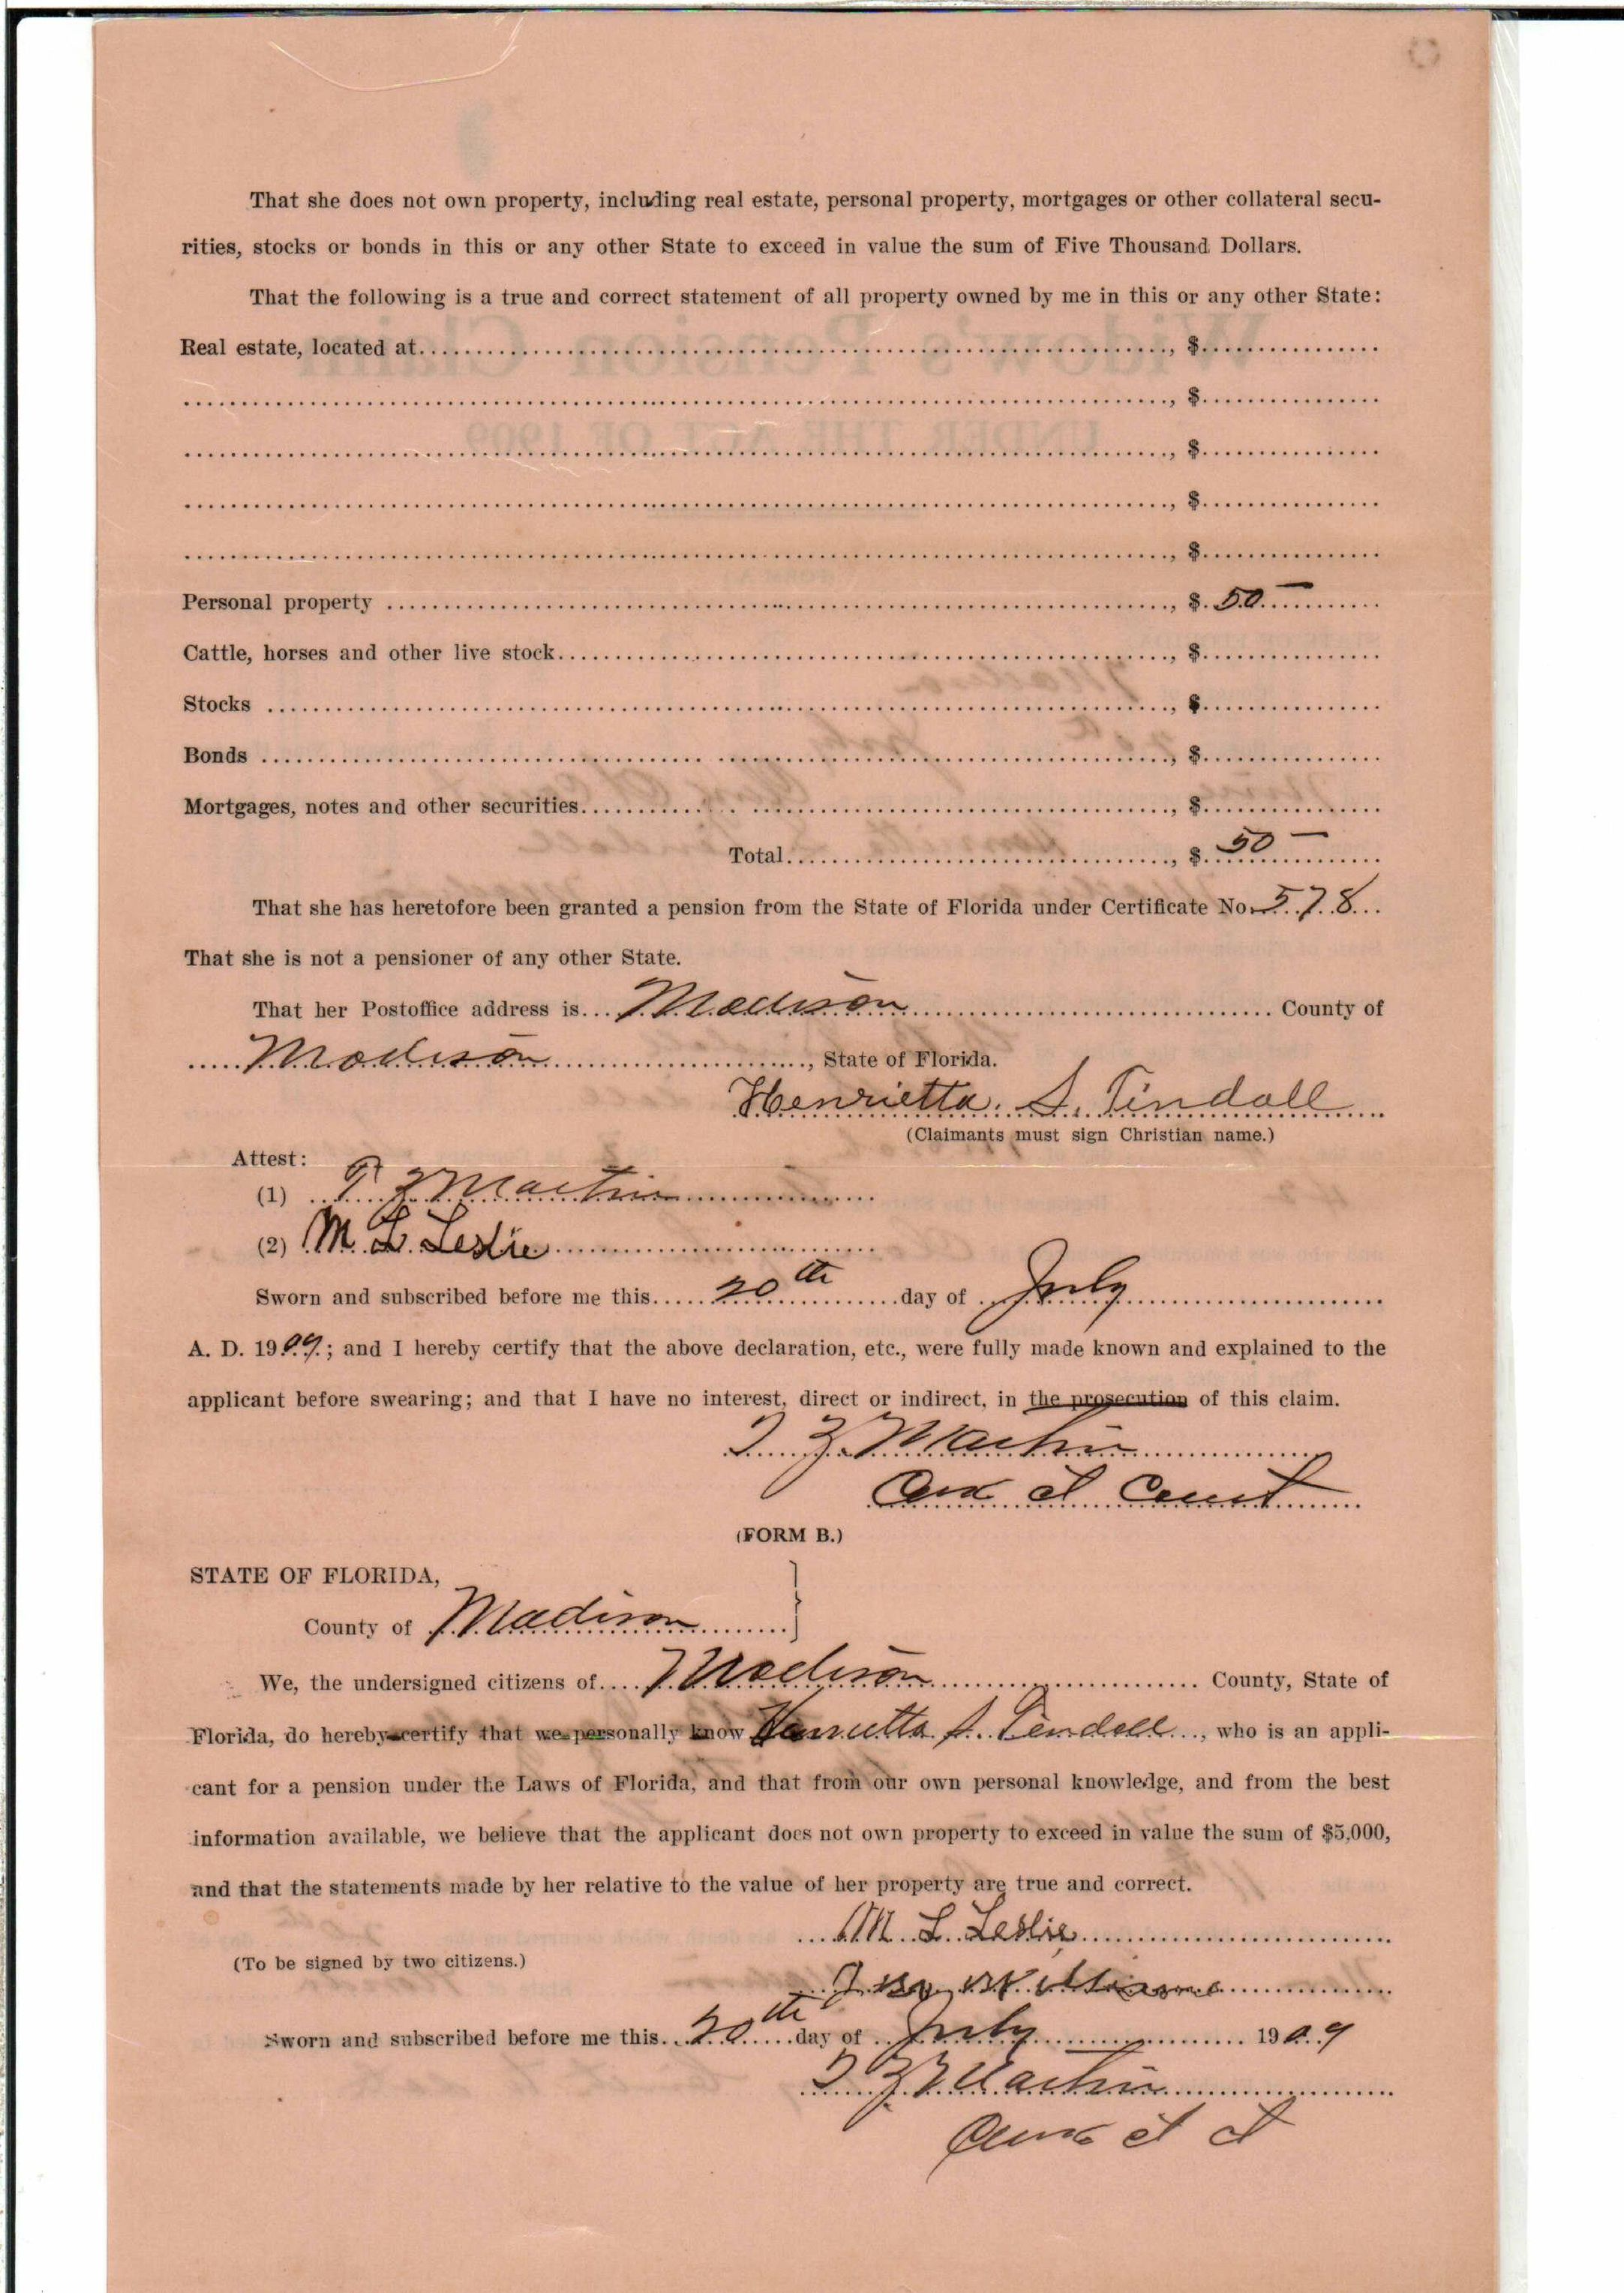 That she does not own property, including real estate, personal property, mortgages or other collateral secu-
rities, stocks or bonds in this or any other State to exceed in value the sum of Five Thousand Dollars.
That the following is a true and correct statement of all property owned by me in this or any other State:
Real estate, located at..........., $...........
..........., $...........
..........., $...........
..........., $...........
..........., $...........
Personal property ..........., $. 50 —
Cattle, horses and other live stock..........., $...........
Stocks ..........., $...........
Bonds ..........., $...........
Mortgages, notes and other securities..........., $...........
Total..........., $. 50 —
That she has heretofore been granted a pension from the State of Florida under Certificate No. 578
That she is not a pensioner of any other State.
That her Postoffice address is... Madison ........... County of
Madison ..........., State of Florida.
Henrietta. S. Tindall
(Claimants must sign Christian name.)
Attest:
(1) T Z Martin
(2) M. L. Leslie
Sworn and subscribed before me this..... 20th .....day of July
A. D. 1909; and I hereby certify that the above declaration, etc., were fully made known and explained to the
applicant before swearing; and that I have no interest, direct or indirect, in the prosecution of this claim.
T Z Martin
Clerk Ct Court
(FORM B.)
STATE OF FLORIDA,
County of Madison
We, the undersigned citizens of.... Madison ........... County, State of
Florida, do hereby certify that we personally know Henrietta S. Tindall ..., who is an appli-
cant for a pension under the Laws of Florida, and that from our own personal knowledge, and from the best
information available, we believe that the applicant does not own property to exceed in value the sum of $5,000,
and that the statements made by her relative to the value of her property are true and correct.
M. L. Leslie
(To be signed by two citizens.)
Williams
Sworn and subscribed before me this... 20th ....day of July ........... 1909
T Z Martin
Clerk Ct Ct